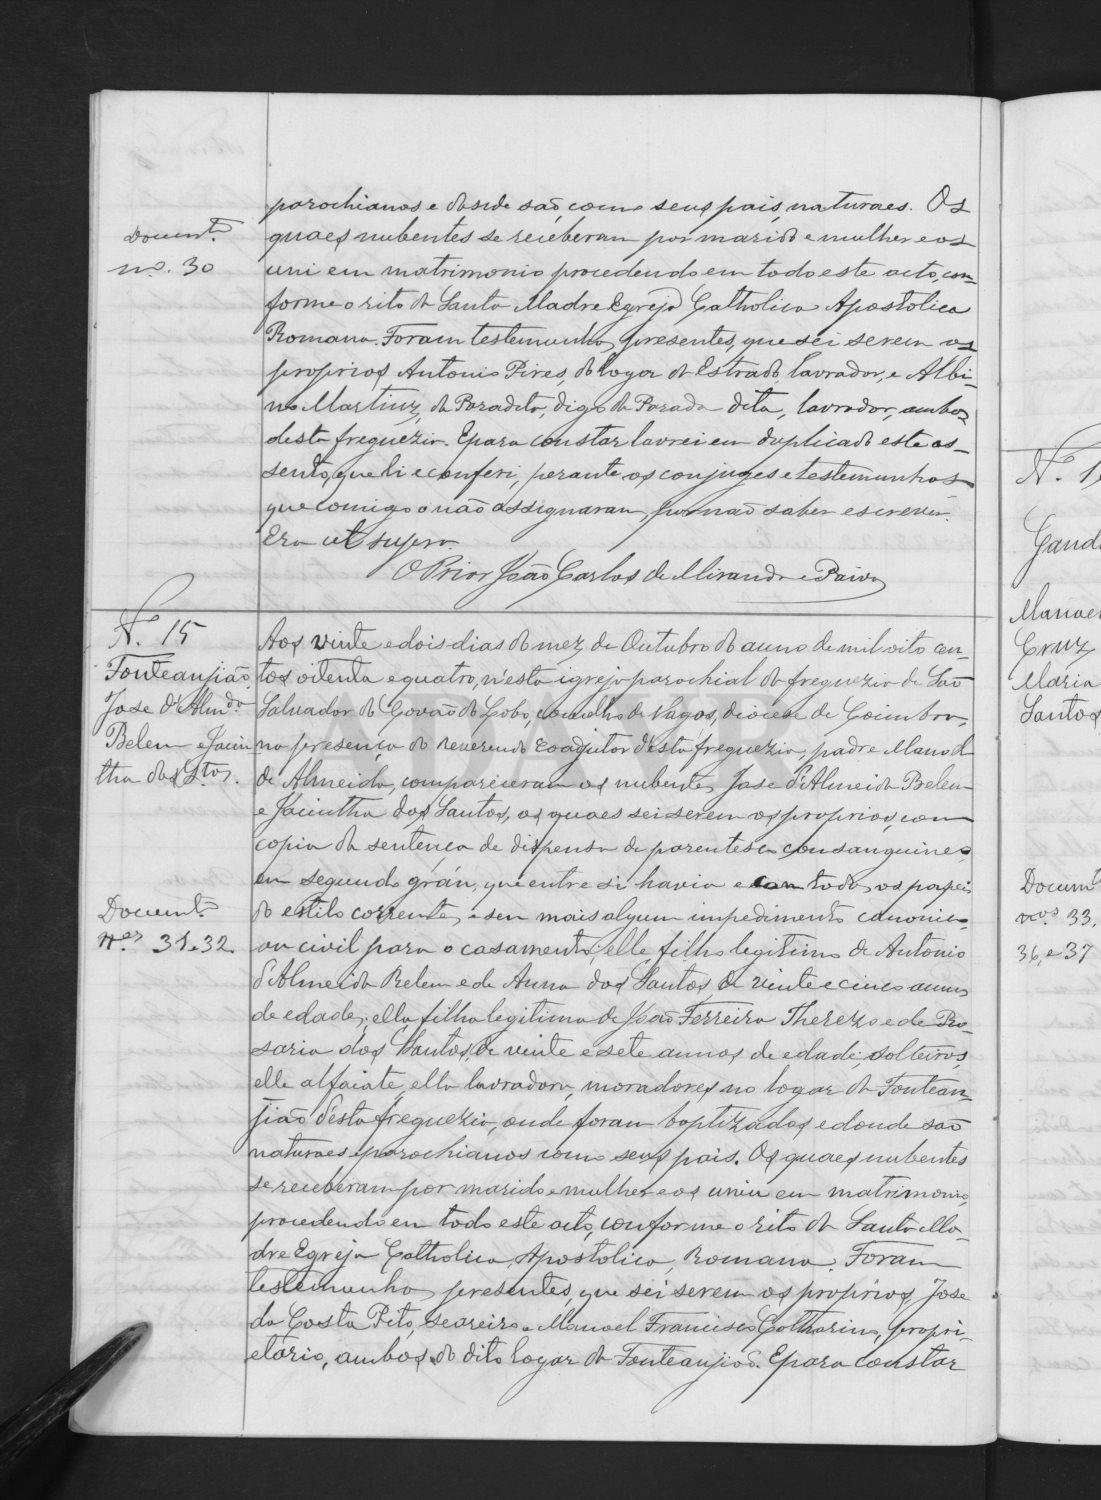 parochianos e donde são, como seus pais, naturaes. Os
Documto
no. 30
quaes nubentes se receberam por marido e mulher e os
uni em matrimonio procedendo em todo este acto, con-
forme o rito da Santa Madre Egreja Catholica Apostolica
Romana. Foram testemunhas presentes, que sei serem os
proprios Antonio Pires, do logar da Estrada, lavrador, e Albi-
no Martins, da Paradita, digo da Parada dita, lavrador, ambos
desta freguezia. E para constar lavrei em duplicado este as-
sento, que li e conferi, perante os conjuges e testemunhas
que comigo o não assignaram, por não saber escrever.
Era ut supra.
O Prior João Carlos de Miranda e Paiva
N. 15
Fonteanjião
Jose d'Almda
Belem e Jacin
tha dos Stos.
Aos vinte e dois dias do mez de Outubro do anno de mil oito cen-
tos oitenta e quatro, n'esta igreja parochial da freguezia de São
Salvador do Covão do Lobo, concelho de Vagos, diocese de Coimbra,
na presença do reverendo coadjutor d'esta freguezia, padre Manoel
de Almeida, compareceram os nubentes Jose d'Almeida Belem
e Jacintha dos Santos, os quaes sei serem os proprios, com
copia da sentença de dispensa de parentesco consanguineo,
em segundo gráu, que entre si havia e com todos os papeis
Documto
nos 31 e 32
do estilo corrente, e sem mais algum impedimento canonico
ou civil para o casamento; elle, filho legitimo de Antonio
d'Almeida Belem e de Anna dos Santos, de vinte e cinco annos
de edade; ella filha legitima de João Ferreira Therezo e de Ro-
saria dos Santos, de vinte e sete annos de edade; solteiros,
elle alfaiate, ella lavradora, moradores no logar da Fontean-
jião d'esta freguezia, onde foram baptizados e donde são
naturaes e parochianos como seus pais. Os quaes nubentes
se receberam por marido e mulher e os uniu em matrimonio
procedendo em todo este acto, conforme o rito da Santa Ma-
dre Egreja Catholica, Apostolica, Romana. Foram
testemunhas presentes, que sei serem os proprios, Jose
da Costa Pito, seareiro e Manoel Francisco Catharino, propri-
etario, ambos do dito logar da Fonteanjião. E para constar
N. 1
Gand
Manoel
Cruz
Maria
Santos
Documt
nos 33,
36, e 37